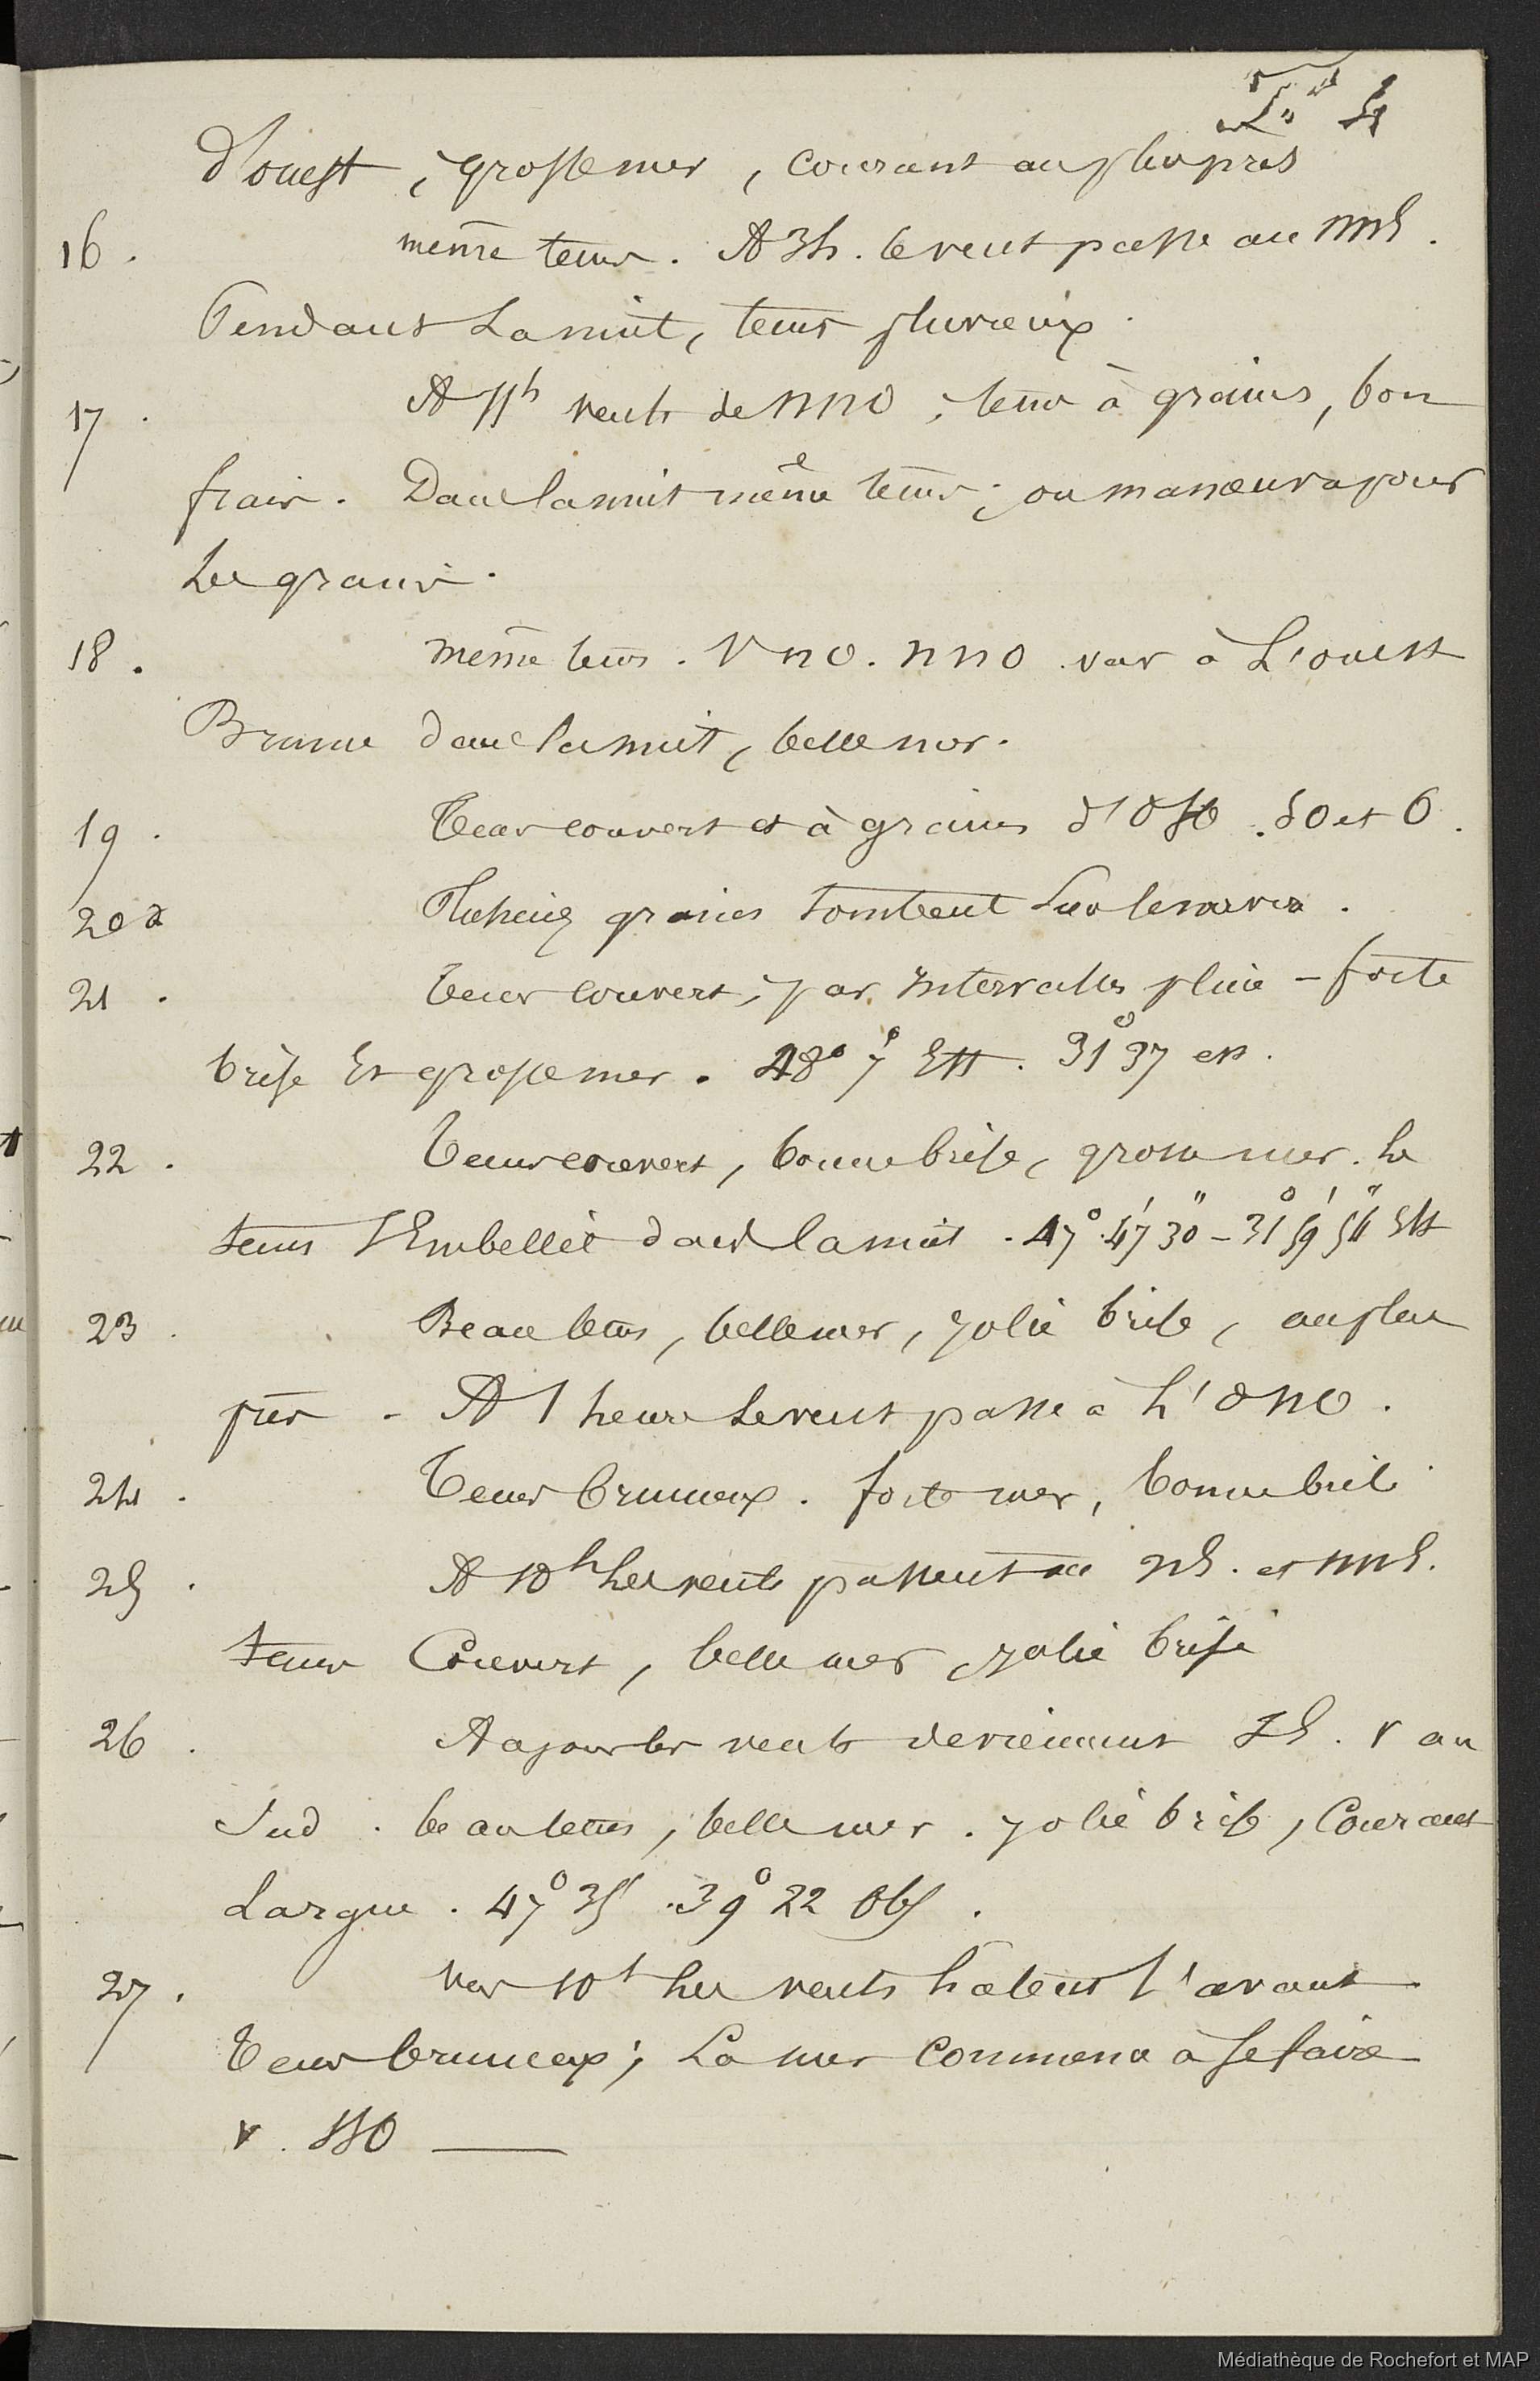 4
d'ouest, grosse mer, courant au plus près
16. même tems. A 3h. le vent passe au NNE.
Pendant La nuit, tems pluvieux.
17. A 11h vents de NNO, tems à grains, bon
frais. Dans la nuit même tems; on manœuvra pour
Les grains.
18. même tems. V NO. NNO var à L'ouest
Brume dans la nuit, belle mer.
19. Tems couvert et à grains d'OSO. SO et O.
20 Plusieurs grains tombent Sur le navire.
21. Tems couvert, par Intervalles pluie - forte
brise Et grosse mer. 48° 7' Est. 31° 37 en.
22. Tems couvert, bonne brise, grosse mer. Le
tems S'Embellit dans la nuit. 47° 47' 30" - 31° 59' 54" Est
23. Beau tems, belle mer, jolie brise, au plus
près - A 1 heure Le vent passe à L'ONO.
24. Tems brumeux. forte mer, bonne brise
25. A 10h Les vents passent au NE. et NNE.
tems Couvert, belle mer jolie brise
26. Au jour les vents deviennent SE. V au
Sud. beau tems, belle mer. jolie brise, Courant
Largue. 47° 35' . 39° 22 Obs.
27. Vers 10h Les vents hâlent l'avant
Tems brumeux; La mer commence à se faire
V. SSO
Médiathèque de Rochefort et MAP